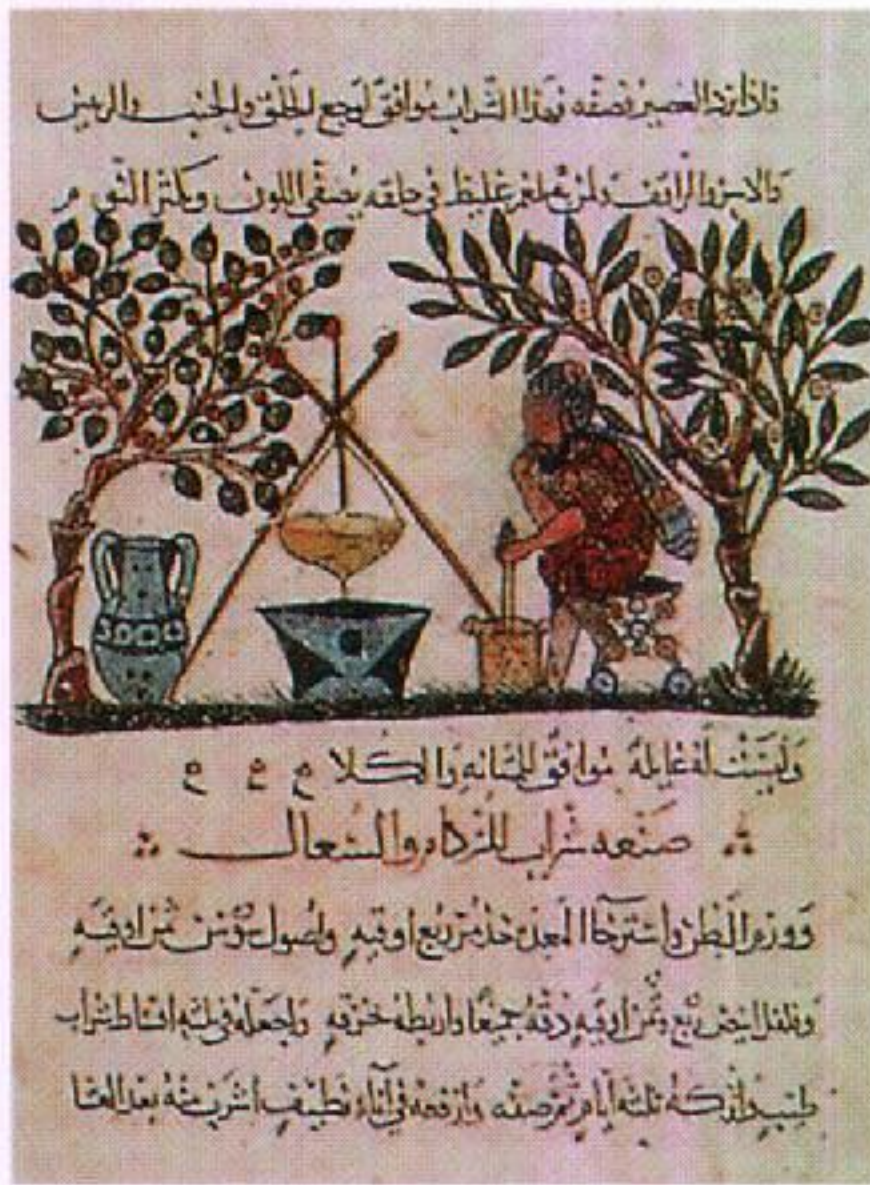 فاذا برد العصير فصفه فهذا الشراب موافق لوجع الحلق والجنب والريش
وليست له غايلة موافق للمثانه والكلا
صنعه شراب للزكام والسعال
وورم البطن واسترخا المعده خذ مر ربع اوقيه واصول سوسن ثمن اوقيه
وفلفل ابيض ربع وثمن اوقيه دقه جميعا واربطه خرقه واجعله في ثلثه اقساط شراب
طيب واتركه ثلثه ايام ثم صفه وارفعه في اناء نظيف اشرب منه بعد العشا